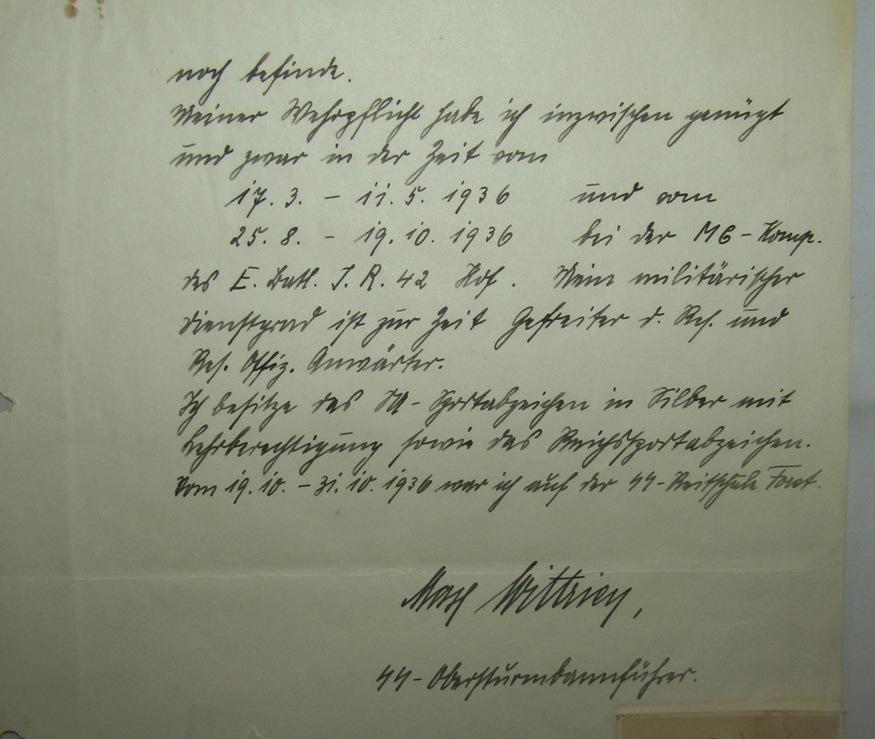 noch befinde.
Meiner Wehrpflicht habe ich inzwischen genügt
und zwar in der Zeit vom
17. 3. - 11. 5. 1936 und vom
25. 8. - 19. 10. 1936 bei der MG-Komp.
des E. Batl. I. R. 42 Hof. Mein militärischer
Dienstgrad ist zur Zeit Gefreiter d. Res. und
Res. Offiz. Anwärter.
Ich besitze das SA-Sportabzeichen in Silber mit
Lehrberechtigung sowie das Reichssportabzeichen.
Vom 19. 10. - 31. 10. 1936 war ich auf der SS-Reitschule Forst.
Max
SS-Obersturmbannführer.